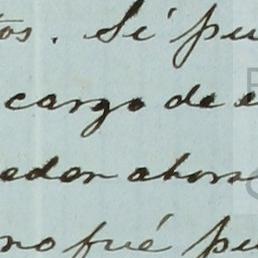 tos. Sé pu
cargo de e
edor ahora
no fué pu